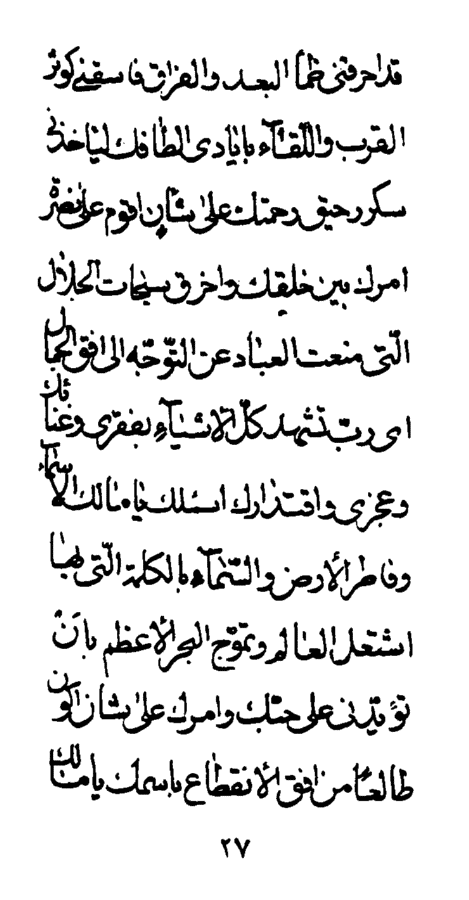 قد احرقنی ظمأ البعد والفراق فاسقنی کوثر
القرب واللّقآء بایادی الطافک لیأخذنی
سکر رحیق رحمتک علی شأن اقوم علی نصرة
امرک بین خلقک واخرق سبحات الجلال
الّتی منعت العباد عن التّوجّه الی افق الجمال
ای ربّ تشهد کلّ الاشیآء بفقری وغنائک
وعجزی واقتدارک اسئلک یا مالک الاسمآء
وفاطر الارض والسّمآء بالکلمة الّتی بها
اشتعل العالم وتموّج البحر الاعظم بان
تؤیّدنی علی حبّک وامرک علی شأن اکون
طالعًا من افق الانقطاع باسمک یا مالک
۲۷